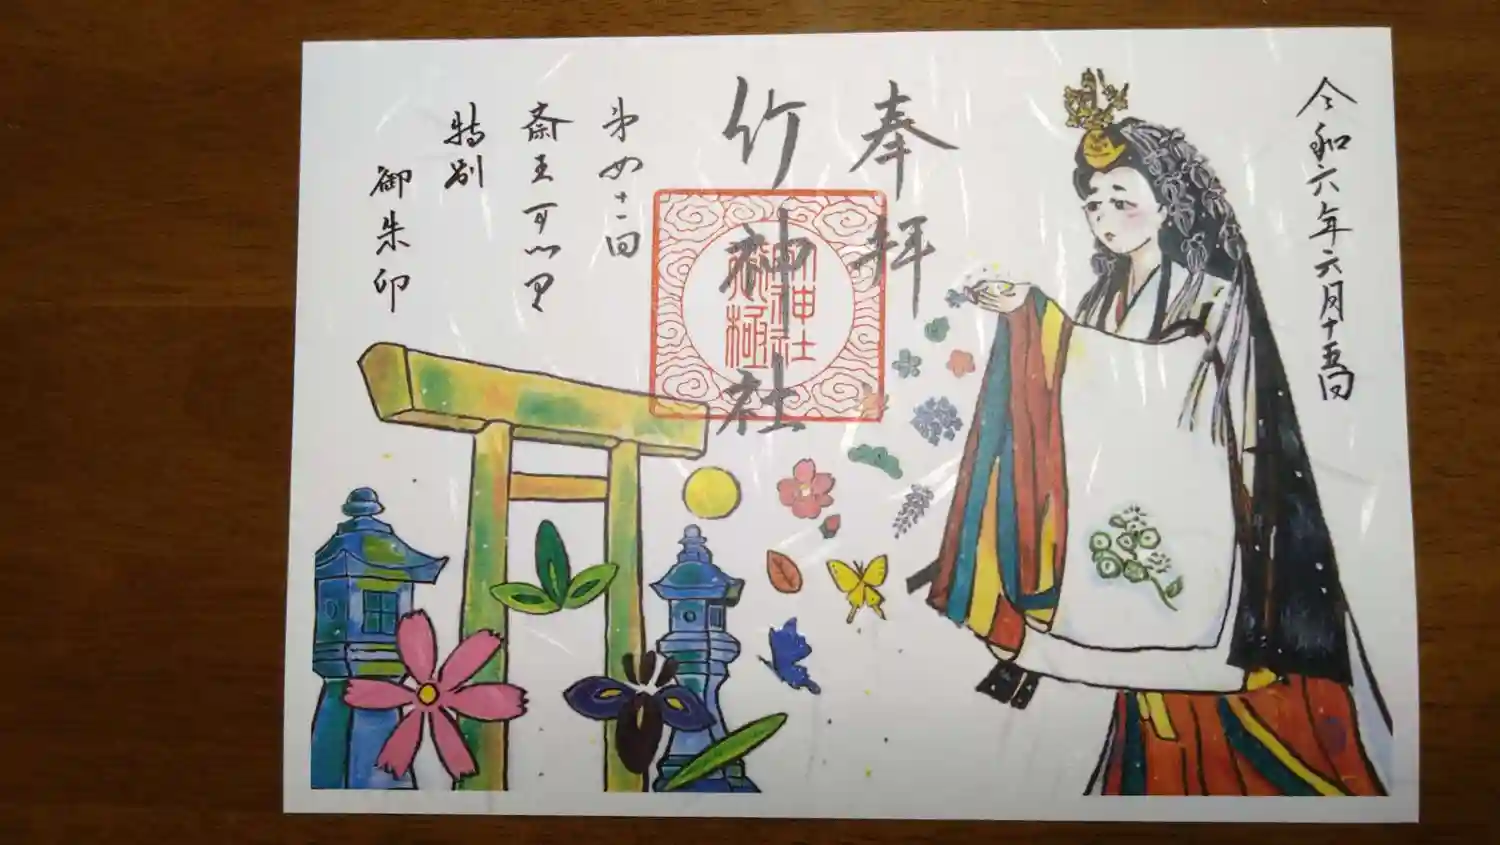 令和六年六月十五日
奉拝
竹神社
第四十一回
斎王まつり
特別
御朱印
竹神社